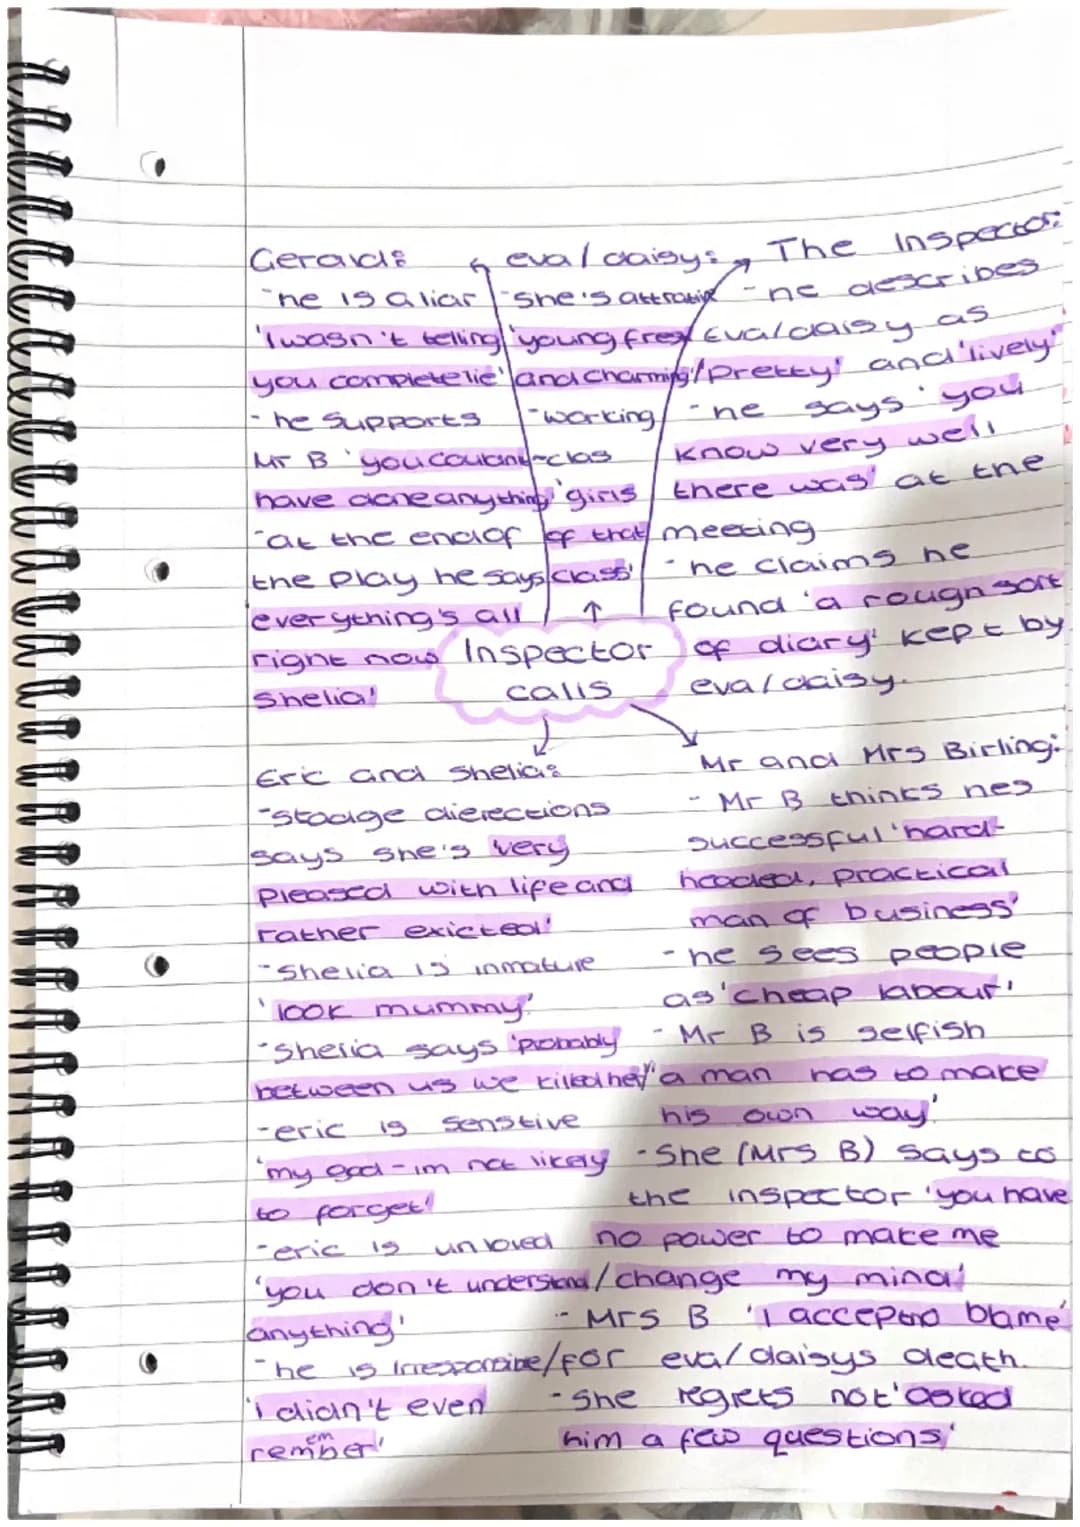 Gerald:
-he is a liar
'I wasn't telling
you complete lie'
- he supports
Mr B 'you couldn't
have done anything'
-at the end of
the play he says
everything's all
right now
Shelia'
eva/daisy:
-she's attrative
'young fresh
and charming'
-working
-clas
'girls
of that
class'
The Inspector:
-he describes
Eva/daisy as
'pretty' and 'lively'
-he says 'you
know very well
there was' at the
meeting
-he claims he
found 'a rough sort
of diary' kept by
eva/daisy.
Inspector
calls
Eric and Shelia:
-staage dierections
says she's 'very
pleased with life and
rather exicted'
-Shelia is inmature
'look mummy'
-Shelia says 'probably
between us we killed her'
-eric is senstive
'my god-im not likely
to forget'
-eric is unloved
'you don't understand
anything'
-he is irresponsible
'i didn't even
rember'
em
Mr and Mrs Birling:
- Mr B thinks hes
successful 'hard-
headed, practical
man of business'
-he sees people
as 'cheap labour'
-Mr B is selfish
'a man has to make
his own way'
-She (Mrs B) says to
the inspector 'you have
no power to make me
change my mind'
-Mrs B 'I accept no blame'
for eva/daisys death.
-She regrets not 'asked
him a few questions'